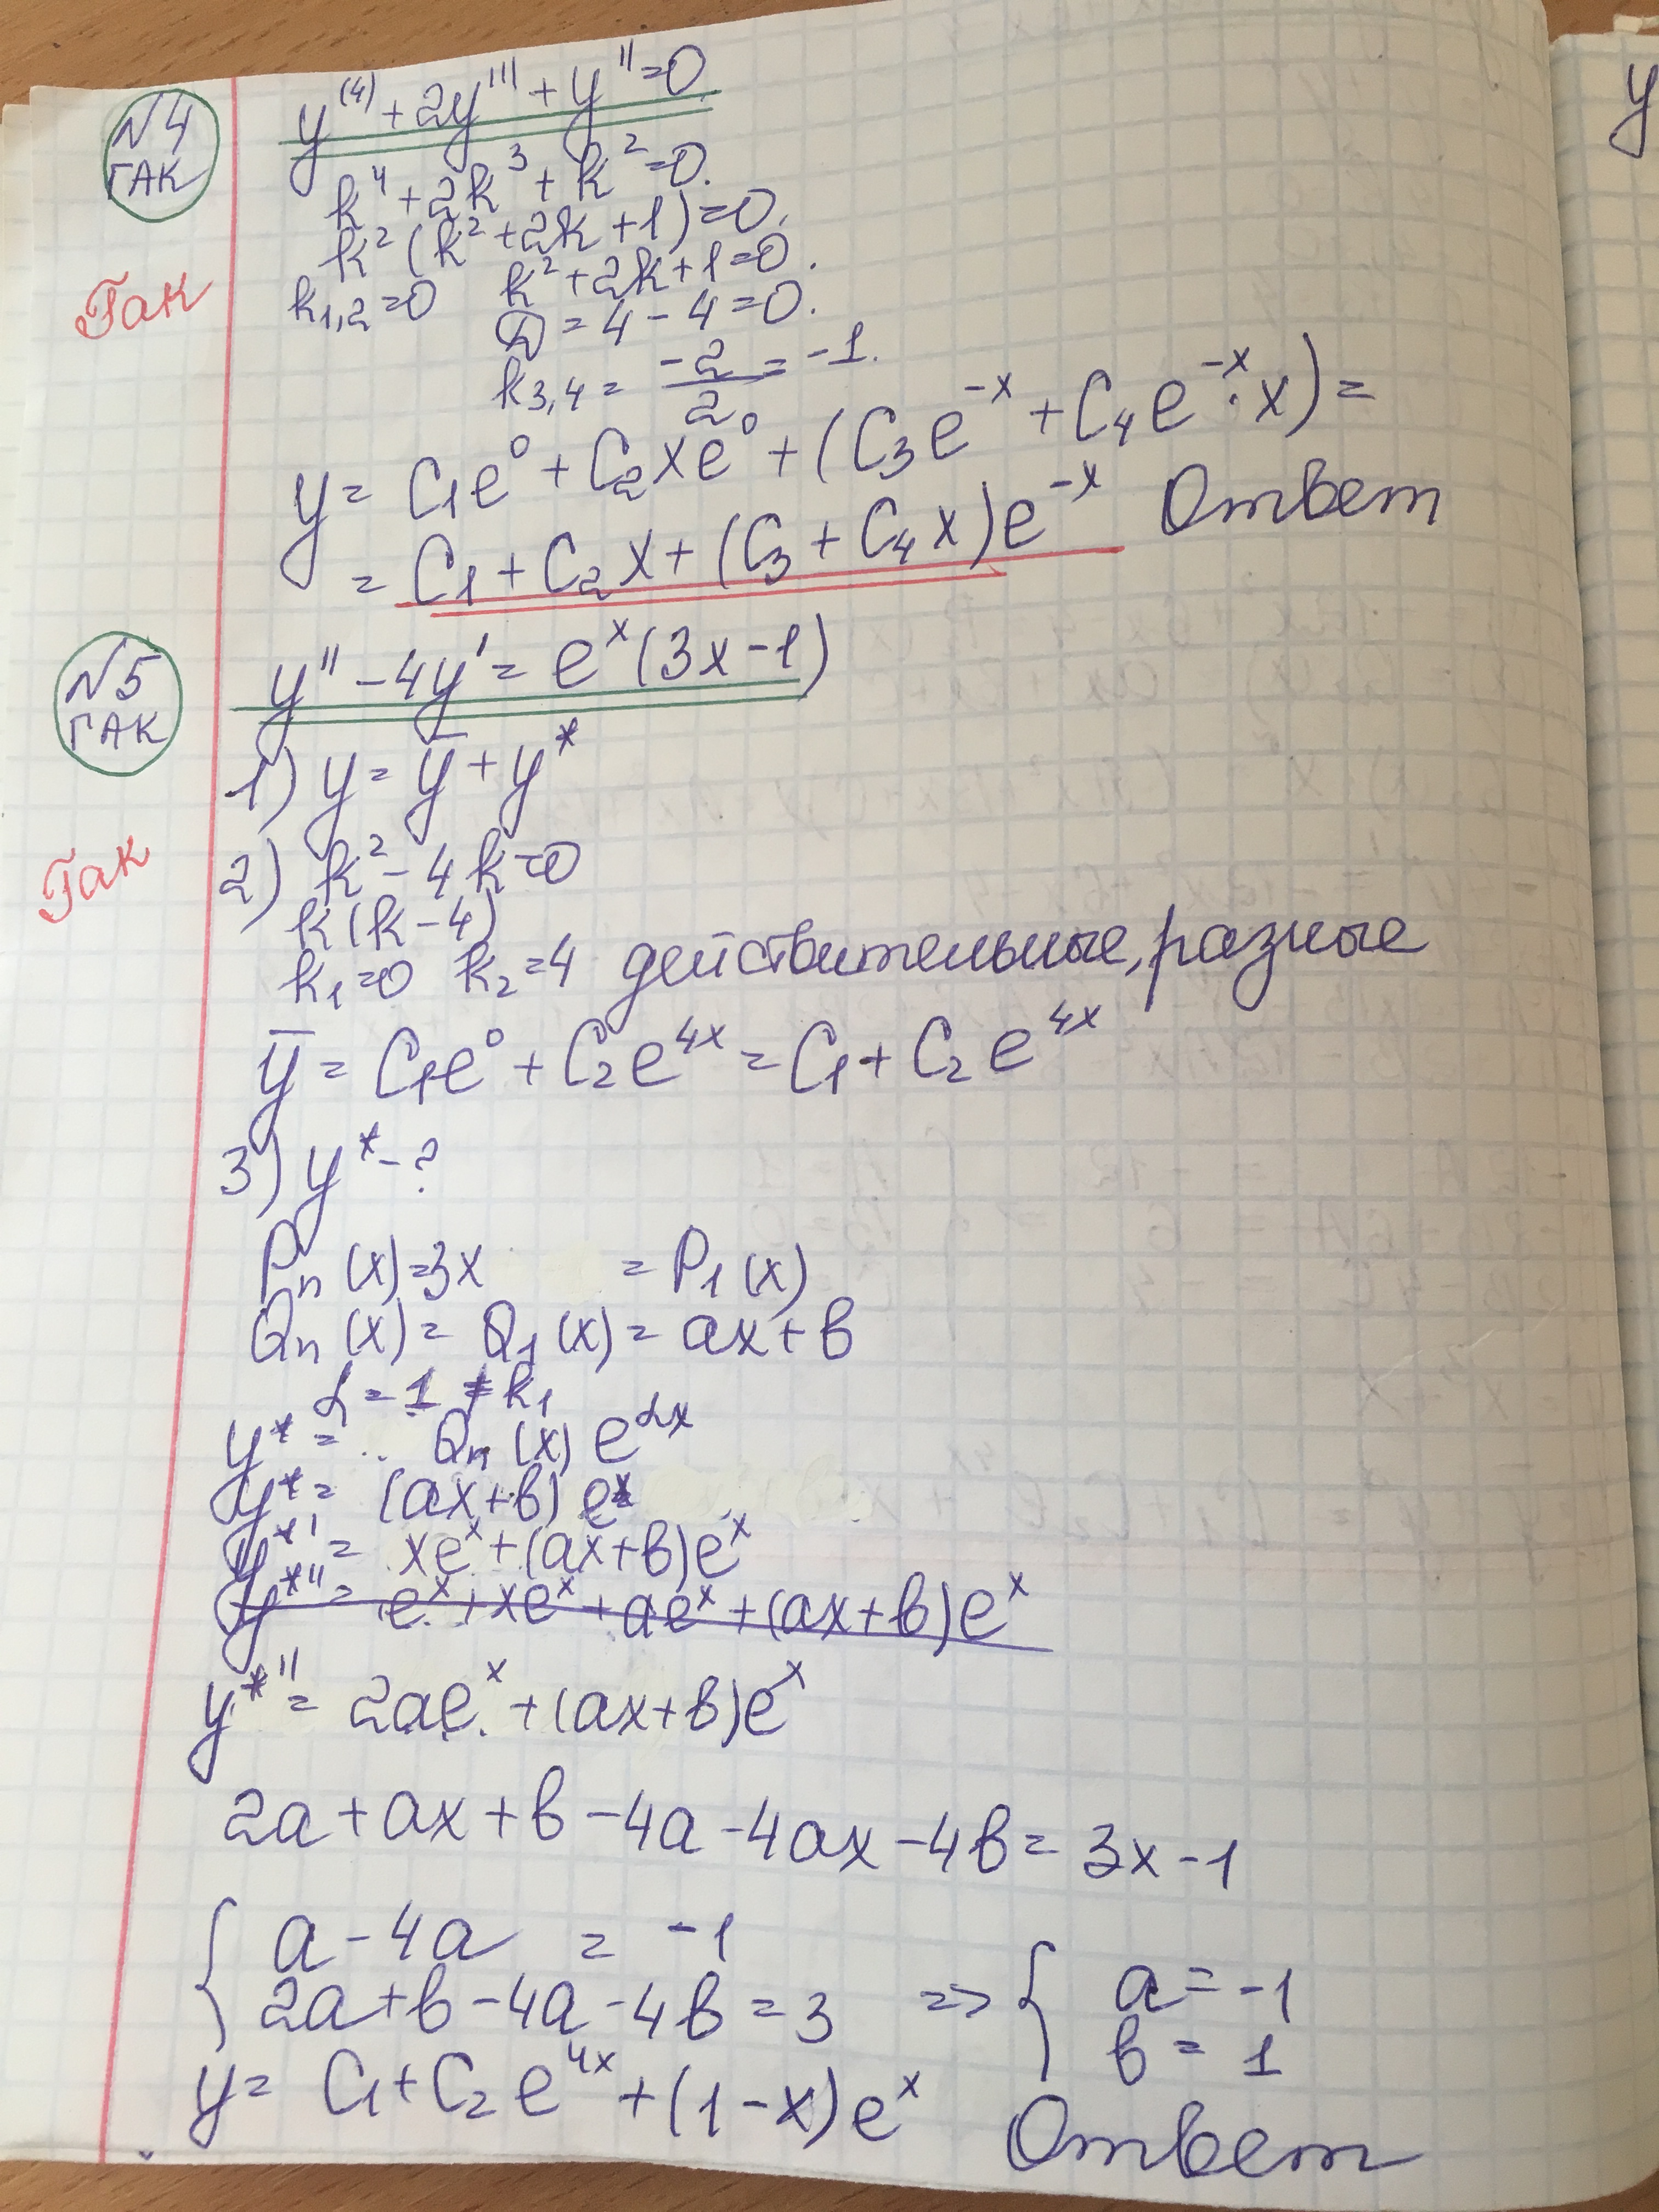 №4 ГАК
y⁽⁴⁾ + 2y''' + y'' = 0
k⁴ + 2k³ + k² = 0.
k²(k² + 2k + 1) = 0.
Гак
k₁,₂ = 0 k² + 2k + 1 = 0.
D = 4 - 4 = 0.
k₃,₄ = -2/2 = -1.
y = C₁e⁰ + C₂xe⁰ + (C₃e⁻ˣ + C₄e⁻ˣ·x) =
= C₁ + C₂x + (C₃ + C₄x)e⁻ˣ Ответ
№5 ГАК
y'' - 4y' = eˣ(3x-1)
1) y = ȳ + y*
Гак
2) k² - 4k = 0
k(k-4)
k₁=0 k₂=4 действительные, разные
ȳ = C₁e⁰ + C₂e⁴ˣ = C₁ + C₂e⁴ˣ
3) y* - ?
Pₙ(x) = 3x = P₁(x)
Qₙ(x) = Q₁(x) = ax + b
α = 1 ≠ k₁
y* = Qₙ(x)e^αx
y* = (ax+b)eˣ
y*' = xeˣ + (ax+b)eˣ
y*'' = eˣ + xeˣ + aeˣ + (ax+b)eˣ
y*'' = 2aeˣ + (ax+b)eˣ
2a + ax + b - 4a - 4ax - 4b = 3x - 1
{ a - 4a = -1
2a + b - 4a - 4b = 3 => { a = -1
b = 1
y = C₁ + C₂e⁴ˣ + (1-x)eˣ
Ответ
y